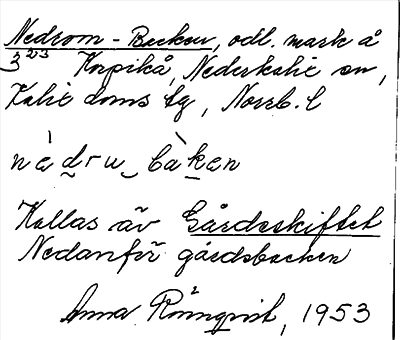 Nedrom-Backen, odl. mark å
3²²³ Korpikå, Nederkalix sn,
Kalix doms lg, Norrb. l
nèdru bàken
Kallas äv Gårdsskiftet
Nedanför gårdsbacken
Anna Rönnqvist, 1953